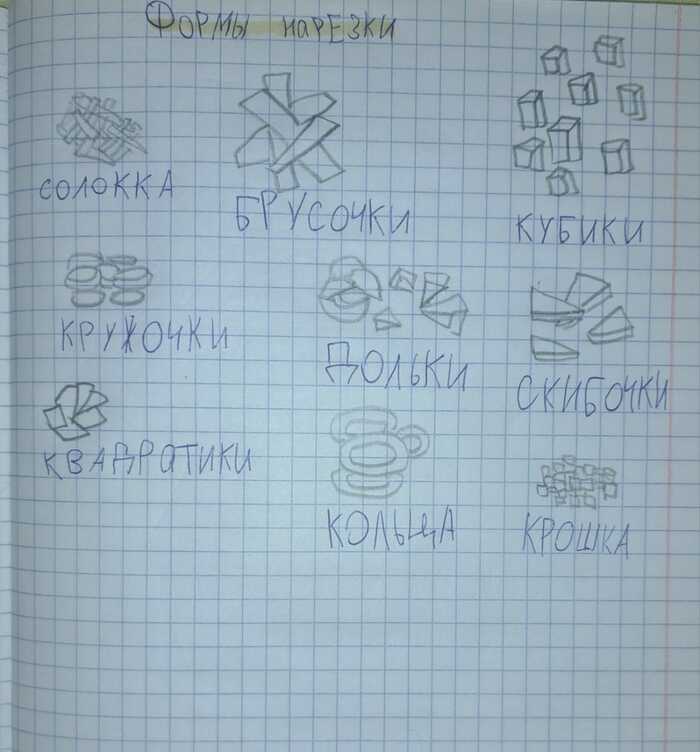 Формы нарезки
СОЛОККА
БРУСОЧКИ
КУБИКИ
КРУЖОЧКИ
ДОЛЬКИ
СКИБОЧКИ
КВАДРАТИКИ
КОЛЬЦА
КРОШКА